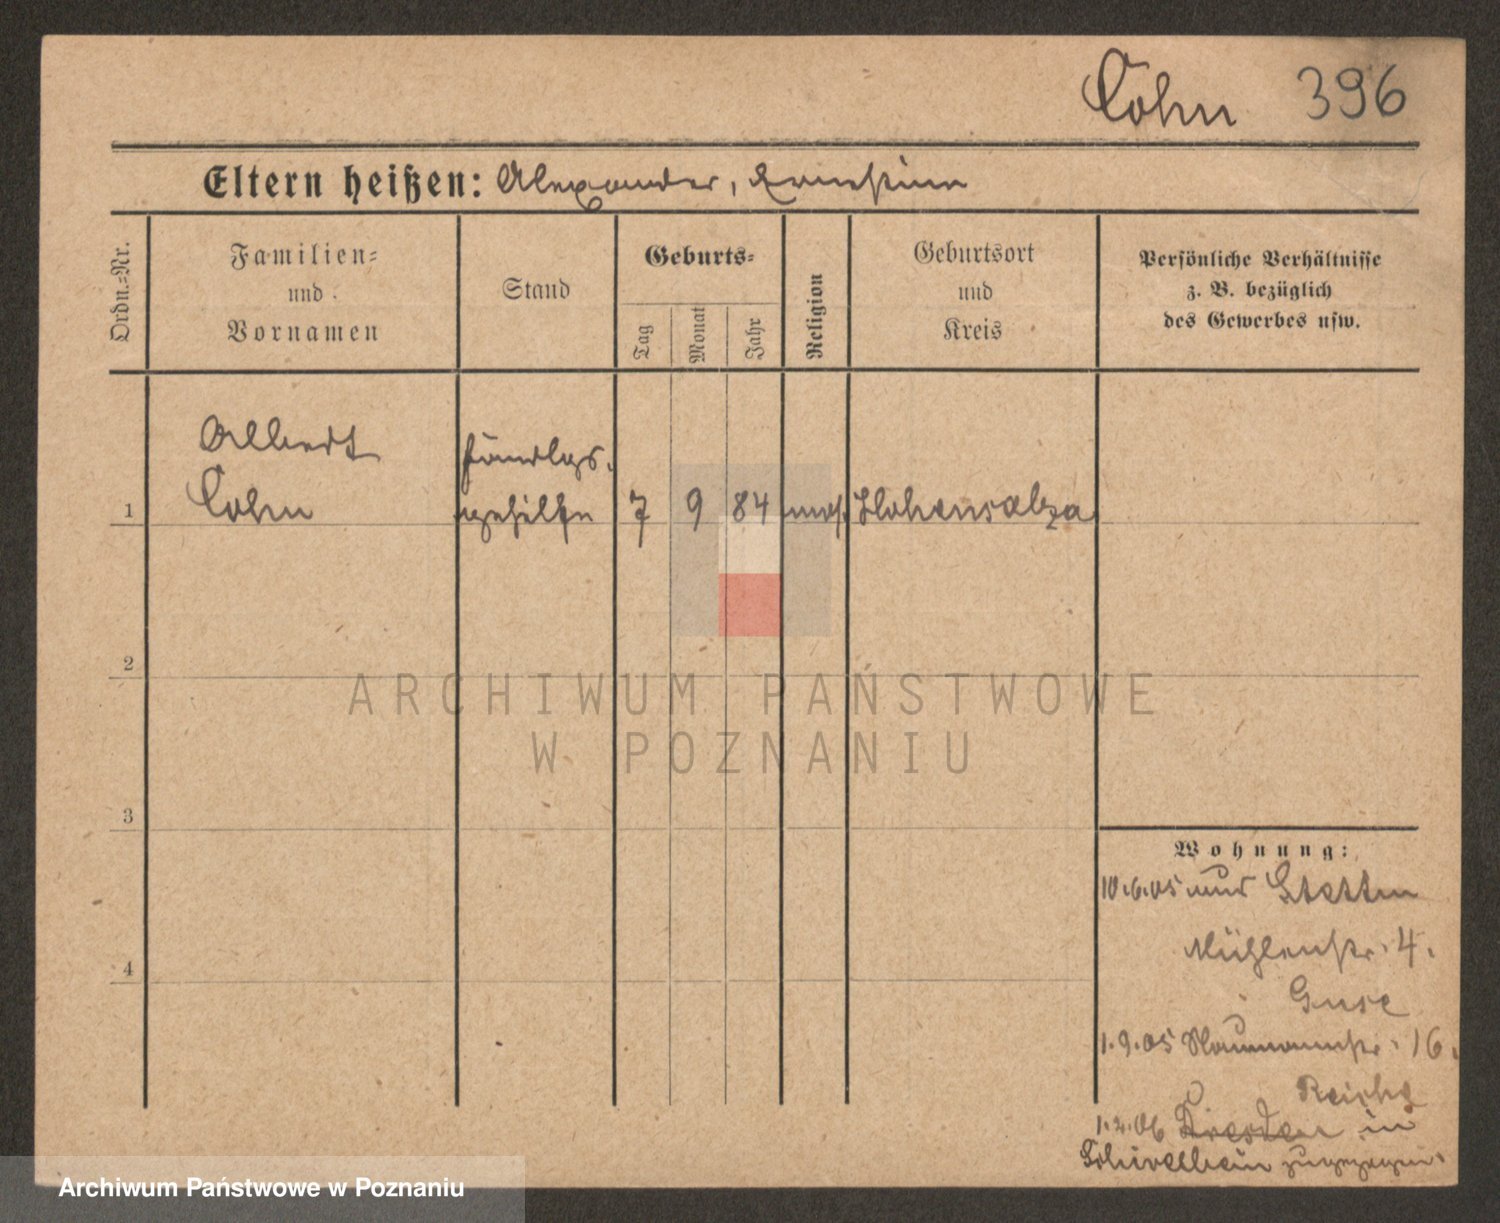 Cohn 396
Eltern heißen: Alexander, Ernestine
Ordn.-Nr.
Familien-
und
Vornamen
Stand
Geburts-
Tag
Monat
Jahr
Religion
Geburtsort
und
Kreis
Persönliche Verhältnisse
z. B. bezüglich
des Gewerbes usw.
Albert
Handlgs.
1 Cohn gehilfe 7 9 84 mos. Hohensalza
2
ARCHIWUM PAŃSTWOWE
W POZNANIU
3
Wohnung:
10.6.05 Stettin
Mühlenstr. 4.
4
Guse
1.9.05 Naumannstr. 16.
1.4.06 Dresden in
Schivelbein zugezogen.
Archiwum Państwowe w Poznaniu